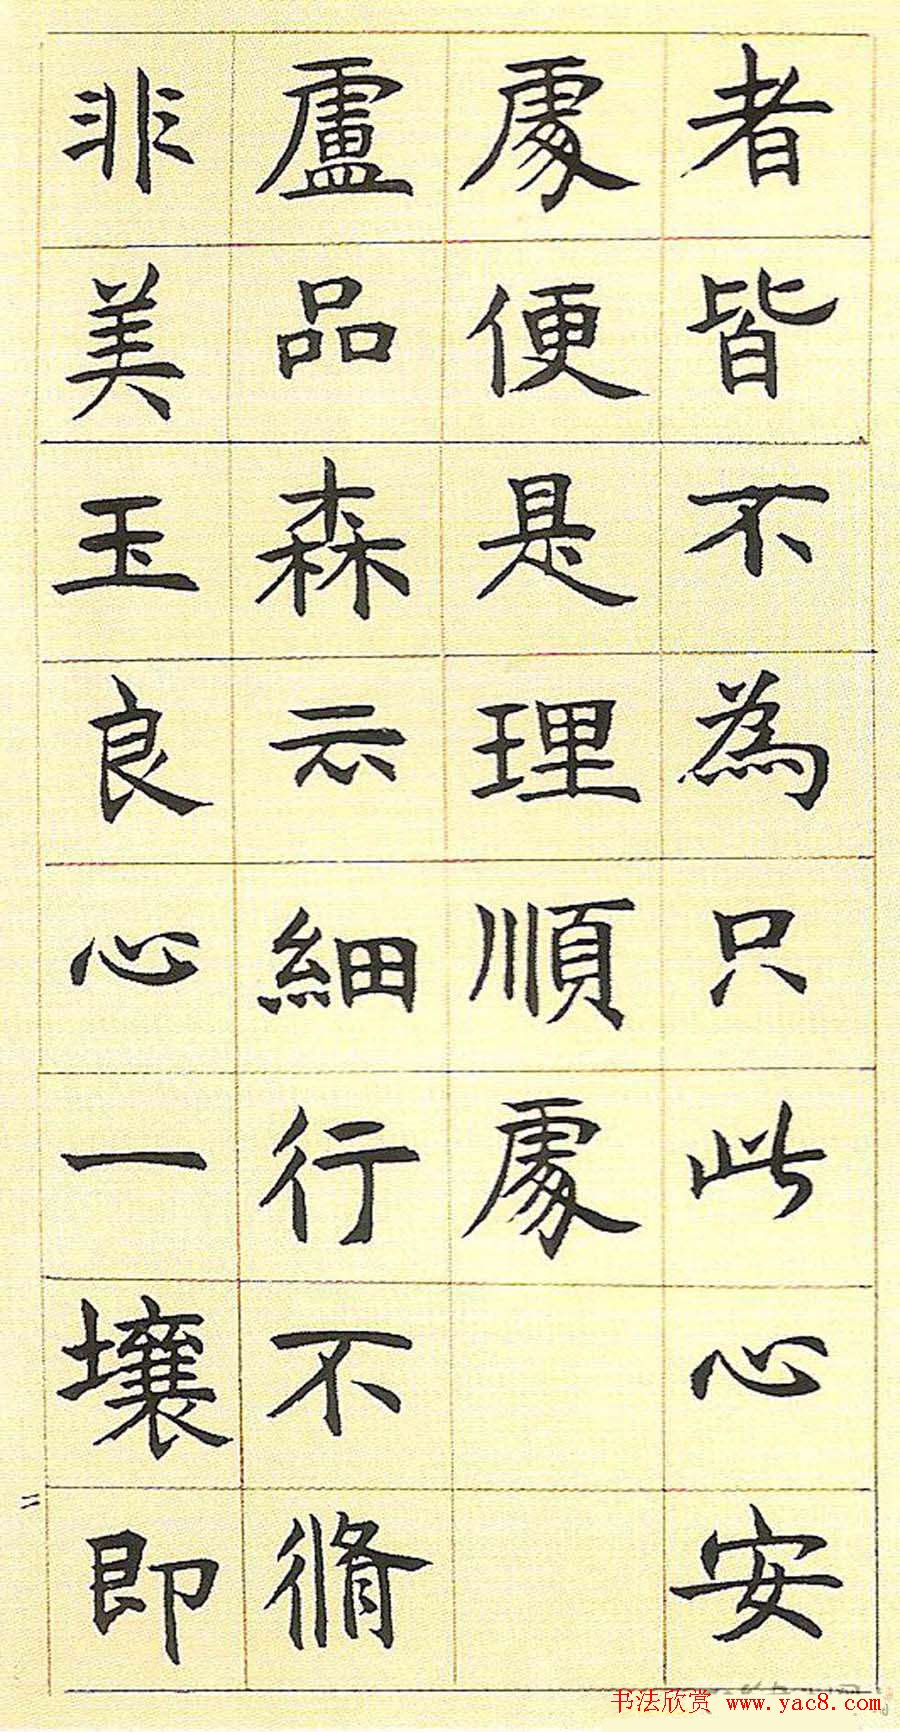 者皆不為只此心安
處便是理順處
盧品森云細行不脩
非美玉良心一壤即
书法欣赏 www.yac8.com